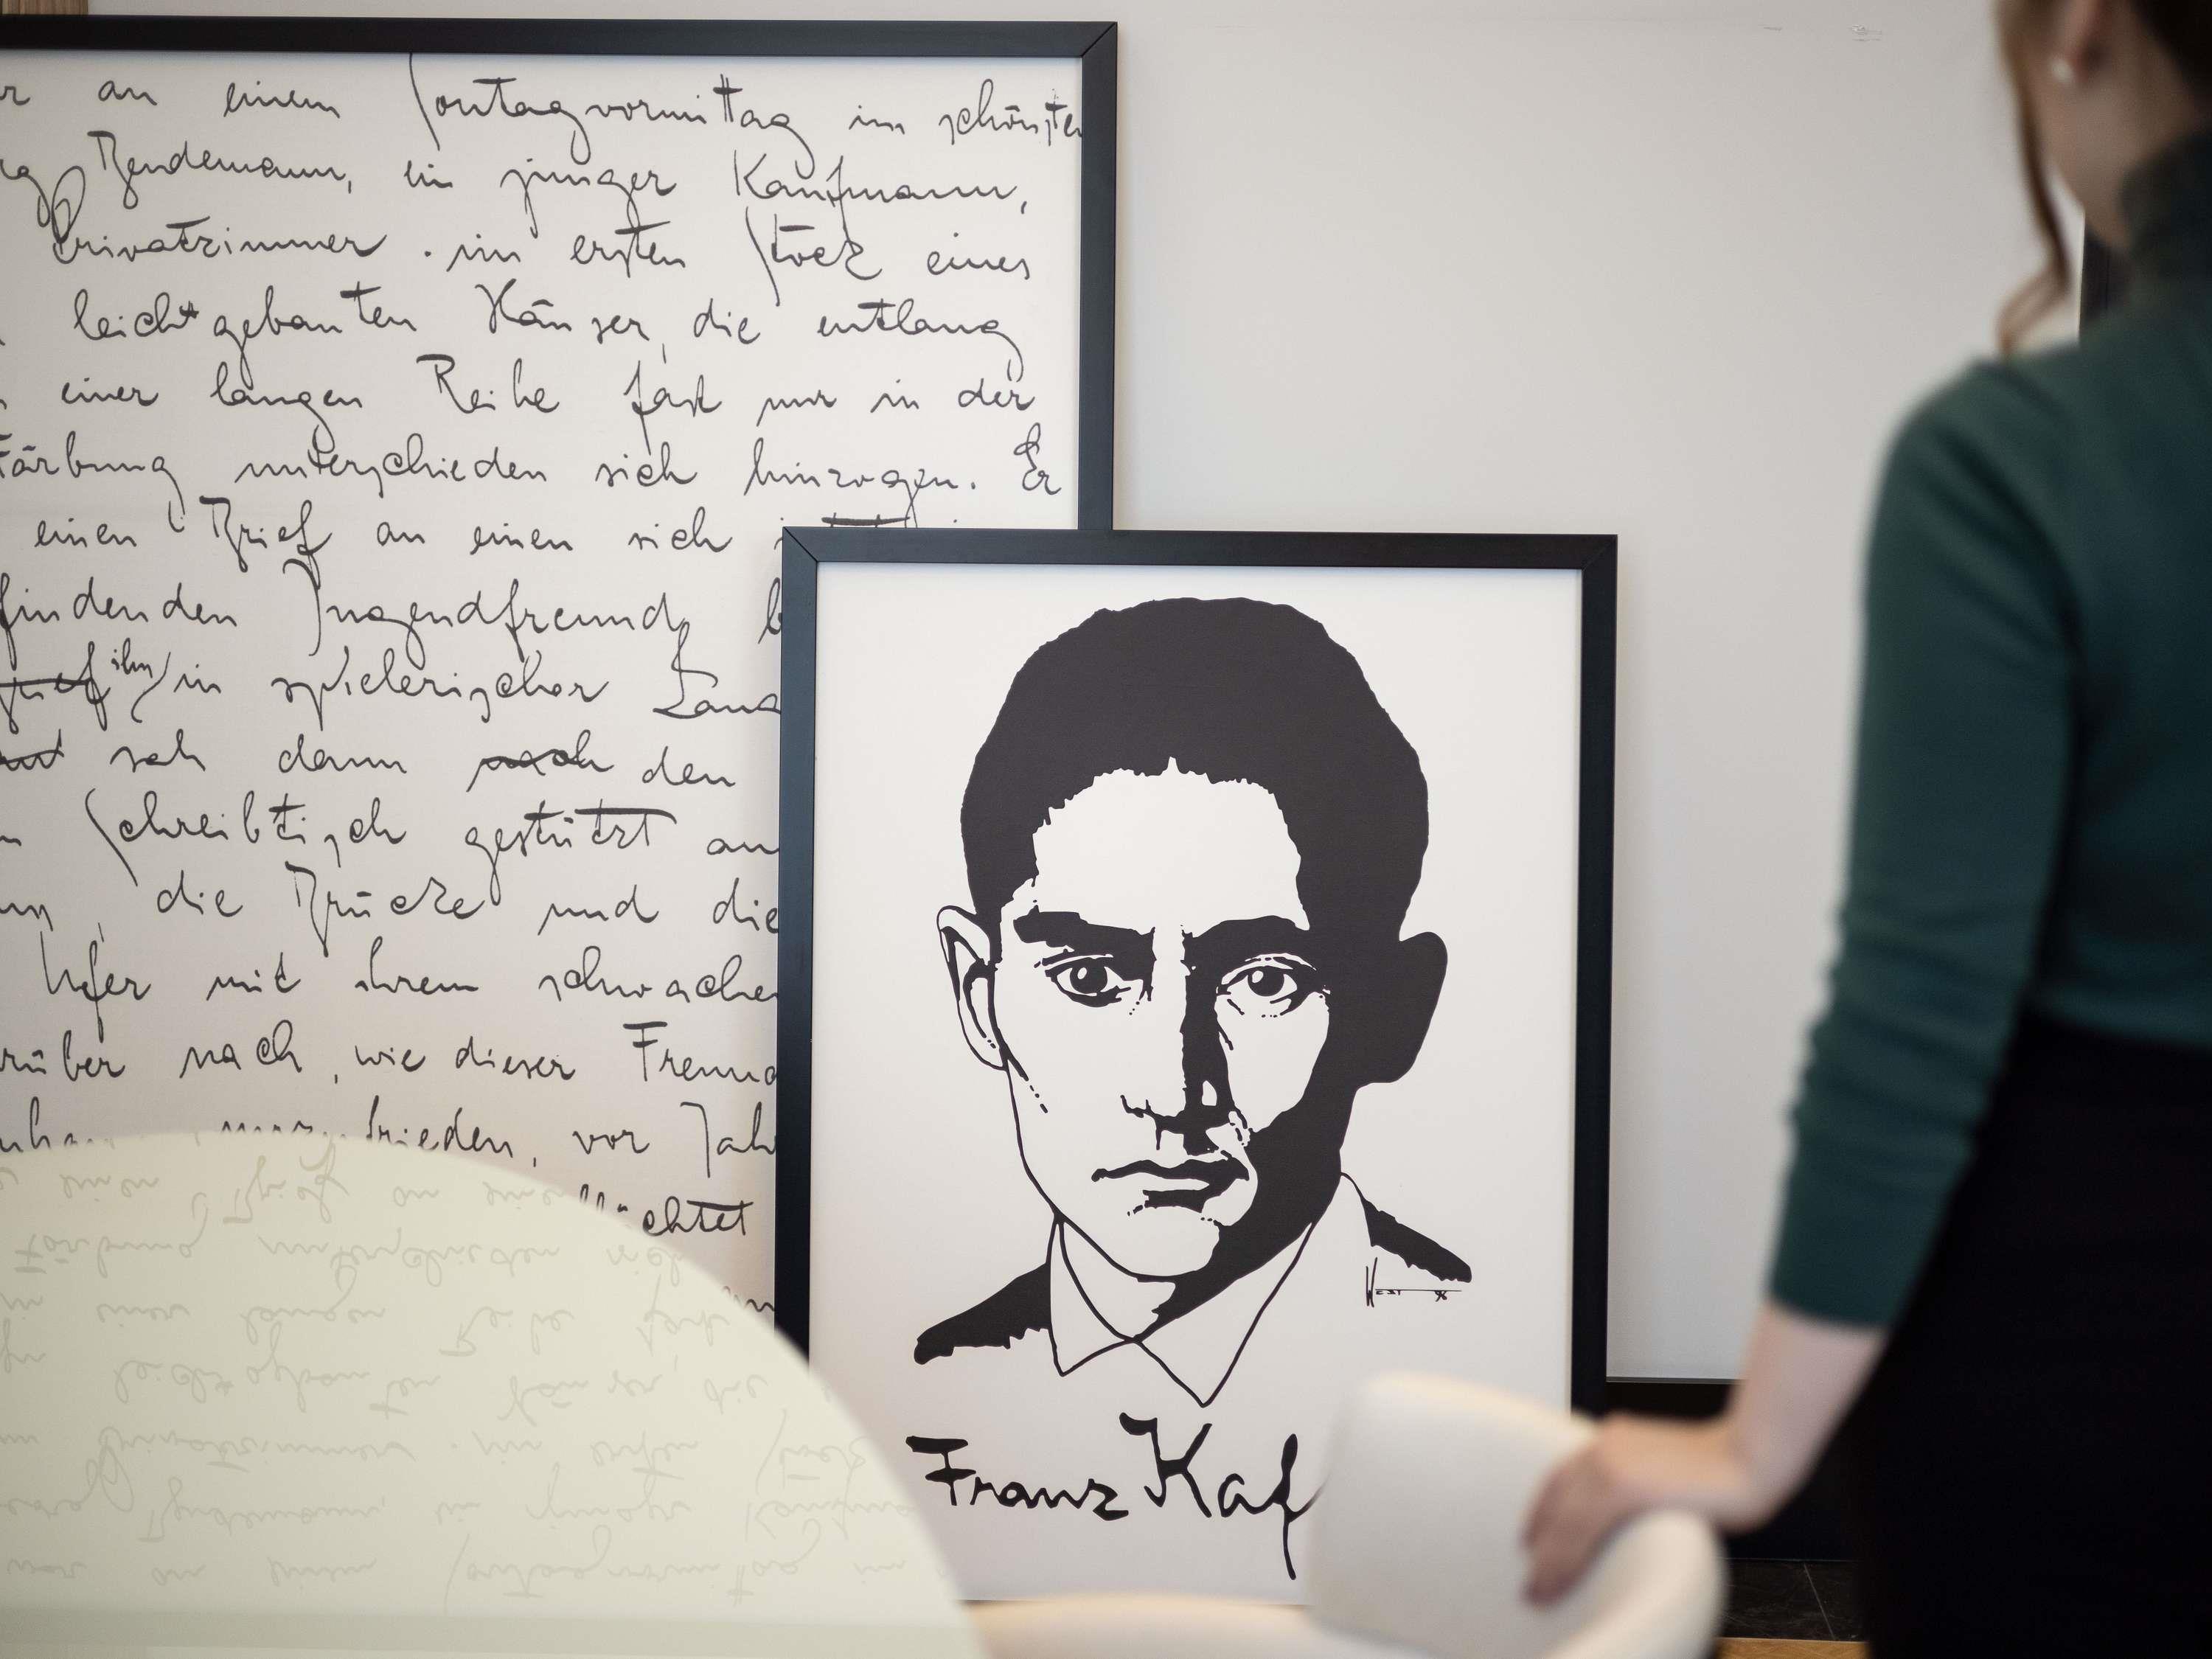 an einem Sontagvormittag im schönsten
Bendemann, ein junger Kaufmann,
Privatzimmer im ersten Stock eines
leichtgebauten Häuser, die entlang
einer langen Reihe fast nur in der
Färbung unterschieden sich hinzogen. Er
einen Brief an einen sich
findenden Jugendfreund
ihn in spielerischer Lang
sah dann nach den
Schreibtisch gestützt au
die Brücke und die
Ufer mit ihrem schwachen
rüber nach, wie dieser Freund
frieden, vor Jah
üchtet
West 96
Franz Kaf